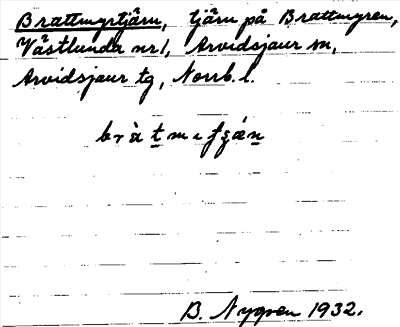 Brattmyrtjärn, tjärn på Brattmyren,
Västlunda nr1, Arvidsjaur sn,
Arvidsjaur tg, Norrb. l.
B. Nygren 1932.